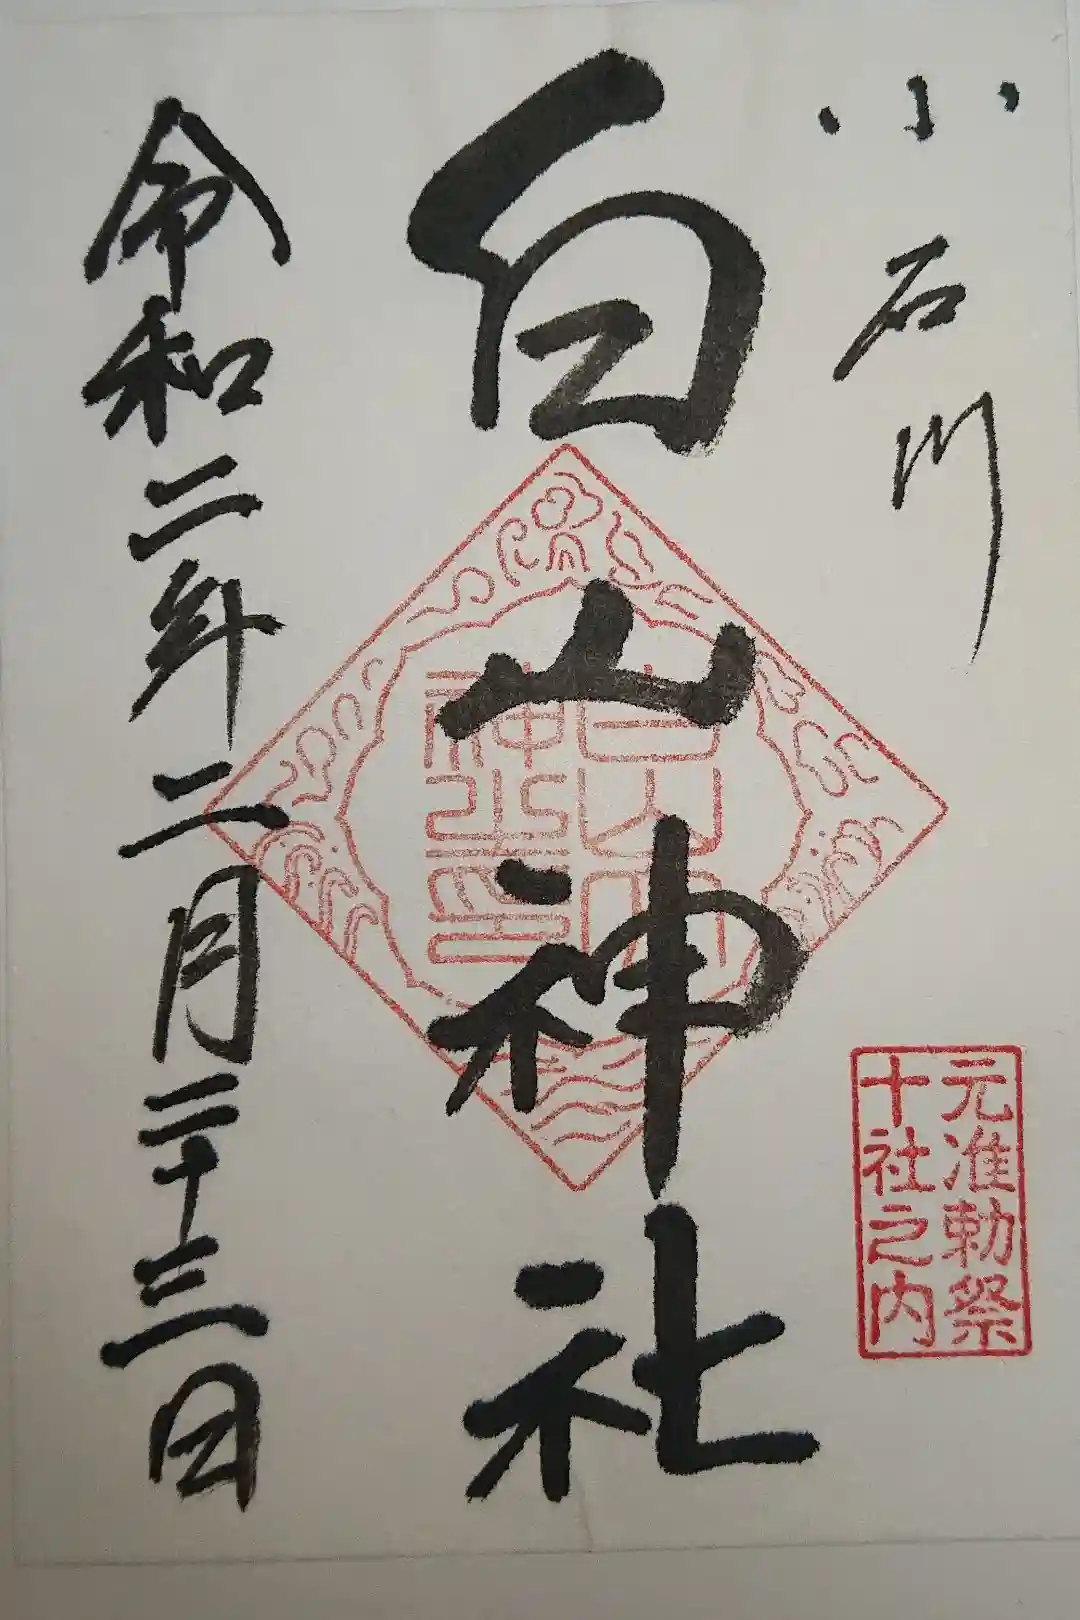 小石川
白山神社
元准勅祭
十社之内
令和二年二月二十三日